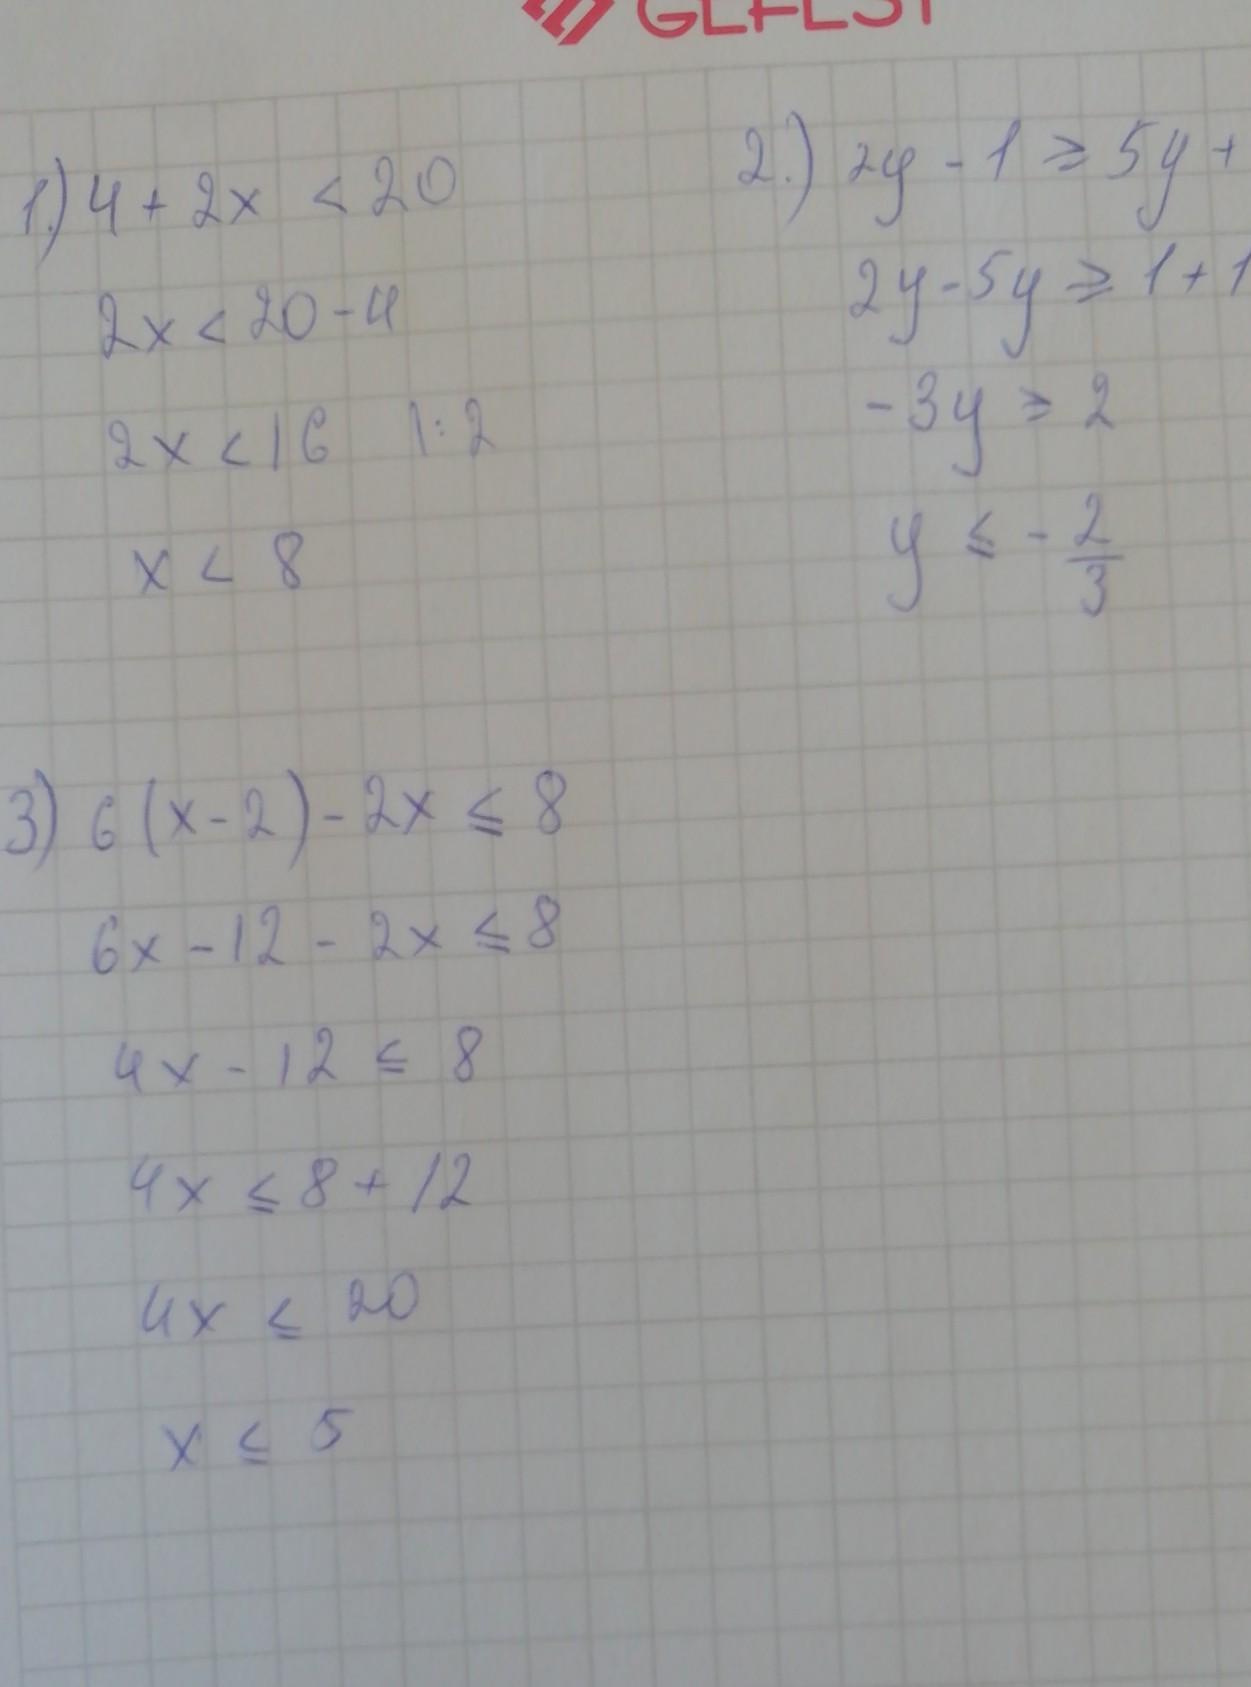 GEFEST
1.) 4 + 2x < 20
2x < 20 - 4
2x < 16 |: 2
x < 8
2.) 2y - 1 ≥ 5y +
2y - 5y ≥ 1 + 1
-3y ≥ 2
y ≤ - 2/3
3) 6(x - 2) - 2x ≤ 8
6x - 12 - 2x ≤ 8
4x - 12 ≤ 8
4x ≤ 8 + 12
4x ≤ 20
x ≤ 5